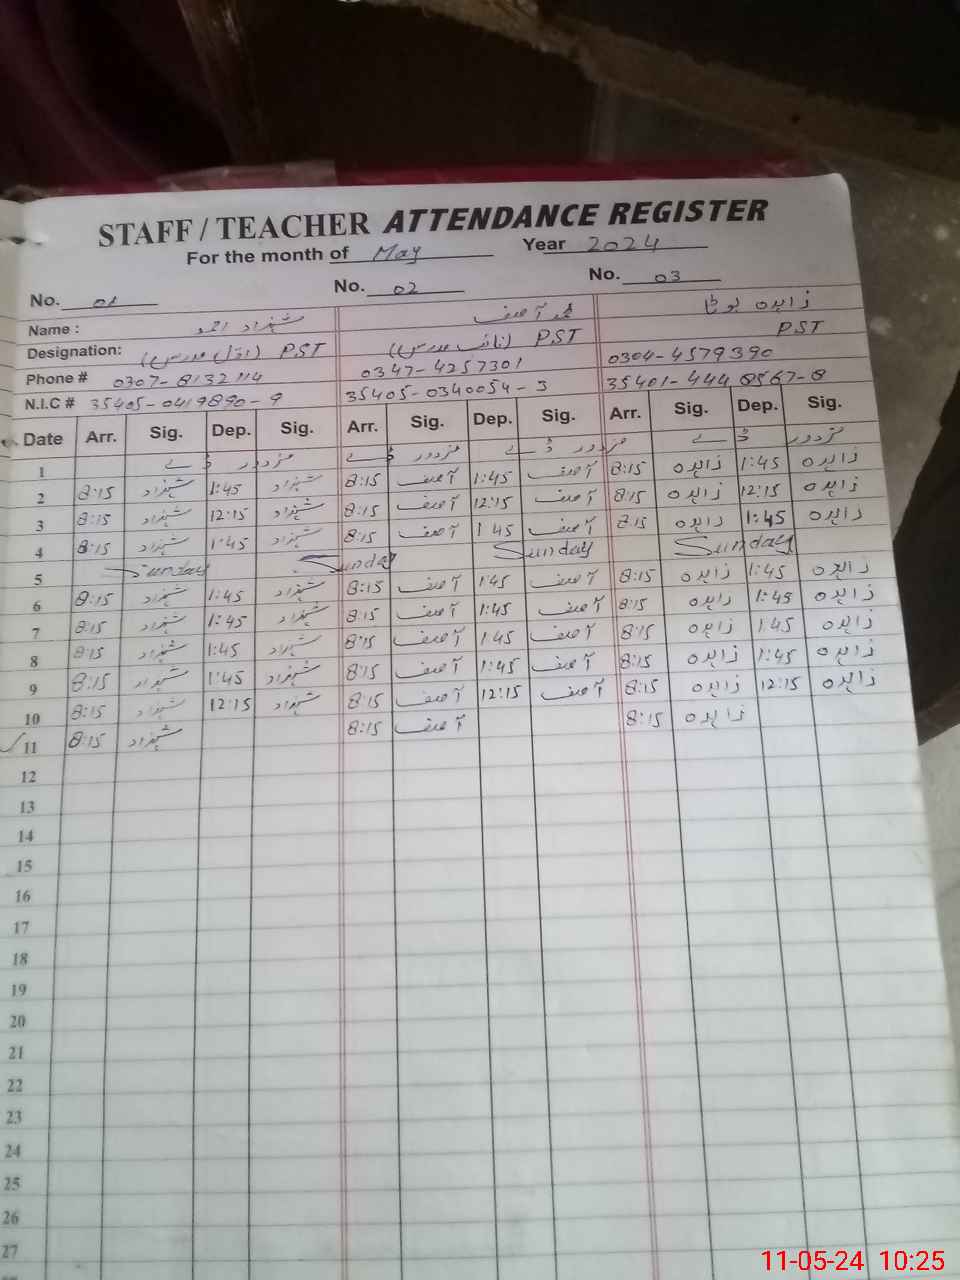 STAFF / TEACHER ATTENDANCE REGISTER
For the month of May Year 2024
No. 01 No. 02 No. 03
Name : شہزاد احمد محمد آصف زاہدہ بوٹا
Designation: PST (اوّل مدرس) PST (نائب مدرس) PST
Phone # 0307-8132114 0347-4257301 0304-4579390
N.I.C # 35405-0419890-9 35405-0340054-3 35401-4448567-8
Date Arr. Sig. Dep. Sig. Arr. Sig. Dep. Sig. Arr. Sig. Dep. Sig.
1 مزدور ڈے مزدور ڈے مزدور ڈے مزدور ڈے
2 8:15 شہزاد 1:45 شہزاد 8:15 آصف 1:45 آصف 8:15 زاہدہ 1:45 زاہدہ
3 8:15 شہزاد 12:15 شہزاد 8:15 آصف 12:15 آصف 8:15 زاہدہ 12:15 زاہدہ
4 8:15 شہزاد 1:45 شہزاد 8:15 آصف 1:45 آصف 8:15 زاہدہ 1:45 زاہدہ
5 Sunday Sunday Sunday Sunday
6 8:15 شہزاد 1:45 شہزاد 8:15 آصف 1:45 آصف 8:15 زاہدہ 1:45 زاہدہ
7 8:15 شہزاد 1:45 شہزاد 8:15 آصف 1:45 آصف 8:15 زاہدہ 1:45 زاہدہ
8 8:15 شہزاد 1:45 شہزاد 8:15 آصف 1:45 آصف 8:15 زاہدہ 1:45 زاہدہ
9 8:15 شہزاد 1:45 شہزاد 8:15 آصف 1:45 آصف 8:15 زاہدہ 1:45 زاہدہ
10 8:15 شہزاد 12:15 شہزاد 8:15 آصف 12:15 آصف 8:15 زاہدہ 12:15 زاہدہ
11 8:15 شہزاد 8:15 آصف 8:15 زاہدہ
12
13
14
15
16
17
18
19
20
21
22
23
24
25
26
27
11-05-24 10:25